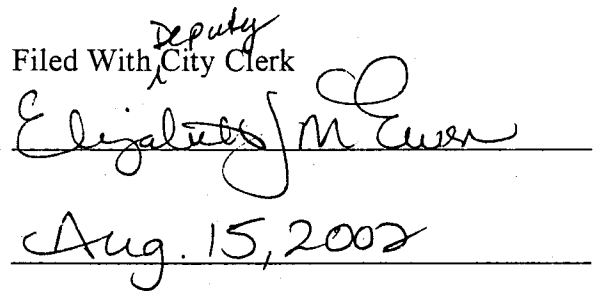 Filed With Deputy City Clerk
Elizabeth J McEwen
Aug. 15, 2002